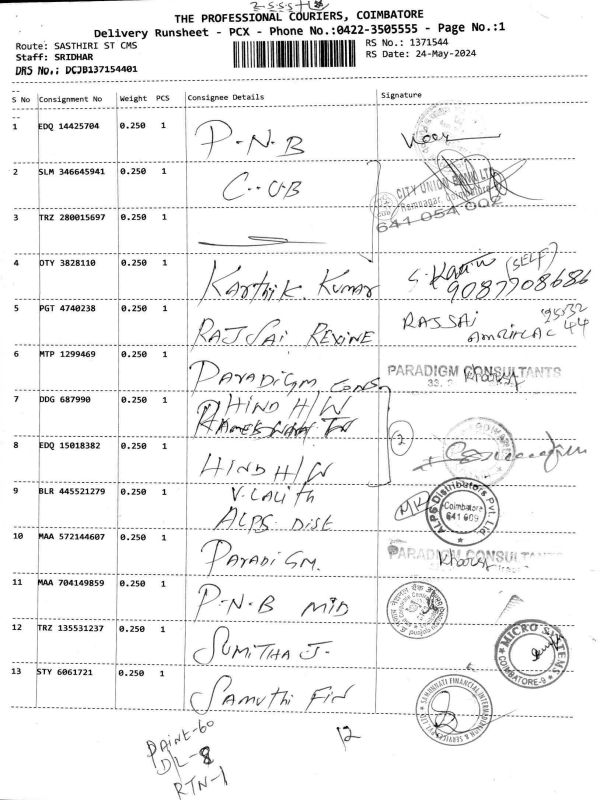 THE PROFESSIONAL COURIERS, COIMBATORE
Delivery Runsheet - PCX - Phone No.:0422-3505555 - Page No.:1
Route: SASTHIRI ST CMS
RS No.: 1371544
Staff: SRIDHAR
RS Date: 24-May-2024
DRS No.: DCJB137154401
S No Consignment No Weight PCS Consignee Details Signature
1 EDQ 14425704 0.250 1 P-N-B
2 SLM 346645941 0.250 1 C-U-B
CITY UNION BANK LTD
Ramnagar, Coimbatore
641-054 002
3 TRZ 280015697 0.250 1
4 DTY 3828110 0.250 1 Karthik. Kumar (SELF)
9087708686
5 PGT 4740238 0.250 1 RAJSAI REXINE RAJSAI
6 MTP 1299469 0.250 1 Paradigm Cons PARADIGM CONSULTANTS
7 DDG 687990 0.250 1 HIND H/W
2
8 EDQ 15018382 0.250 1 HIND H/W
9 BLR 445521279 0.250 1 V. Lalith
ALPS Dist
MK ALPS Distributors Pvt. Ltd.
Coimbatore
641 009
10 MAA 572144607 0.250 1 Paradigm. PARADIGM CONSULTANTS
11 MAA 704149859 0.250 1 P-N-B MID
12 TRZ 135531237 0.250 1 Sumitha J- MICRO SYSTEMS
COIMBATORE-9
13 STY 6061721 0.250 1 Samuthi Fin
12
DL-8
RTN-1